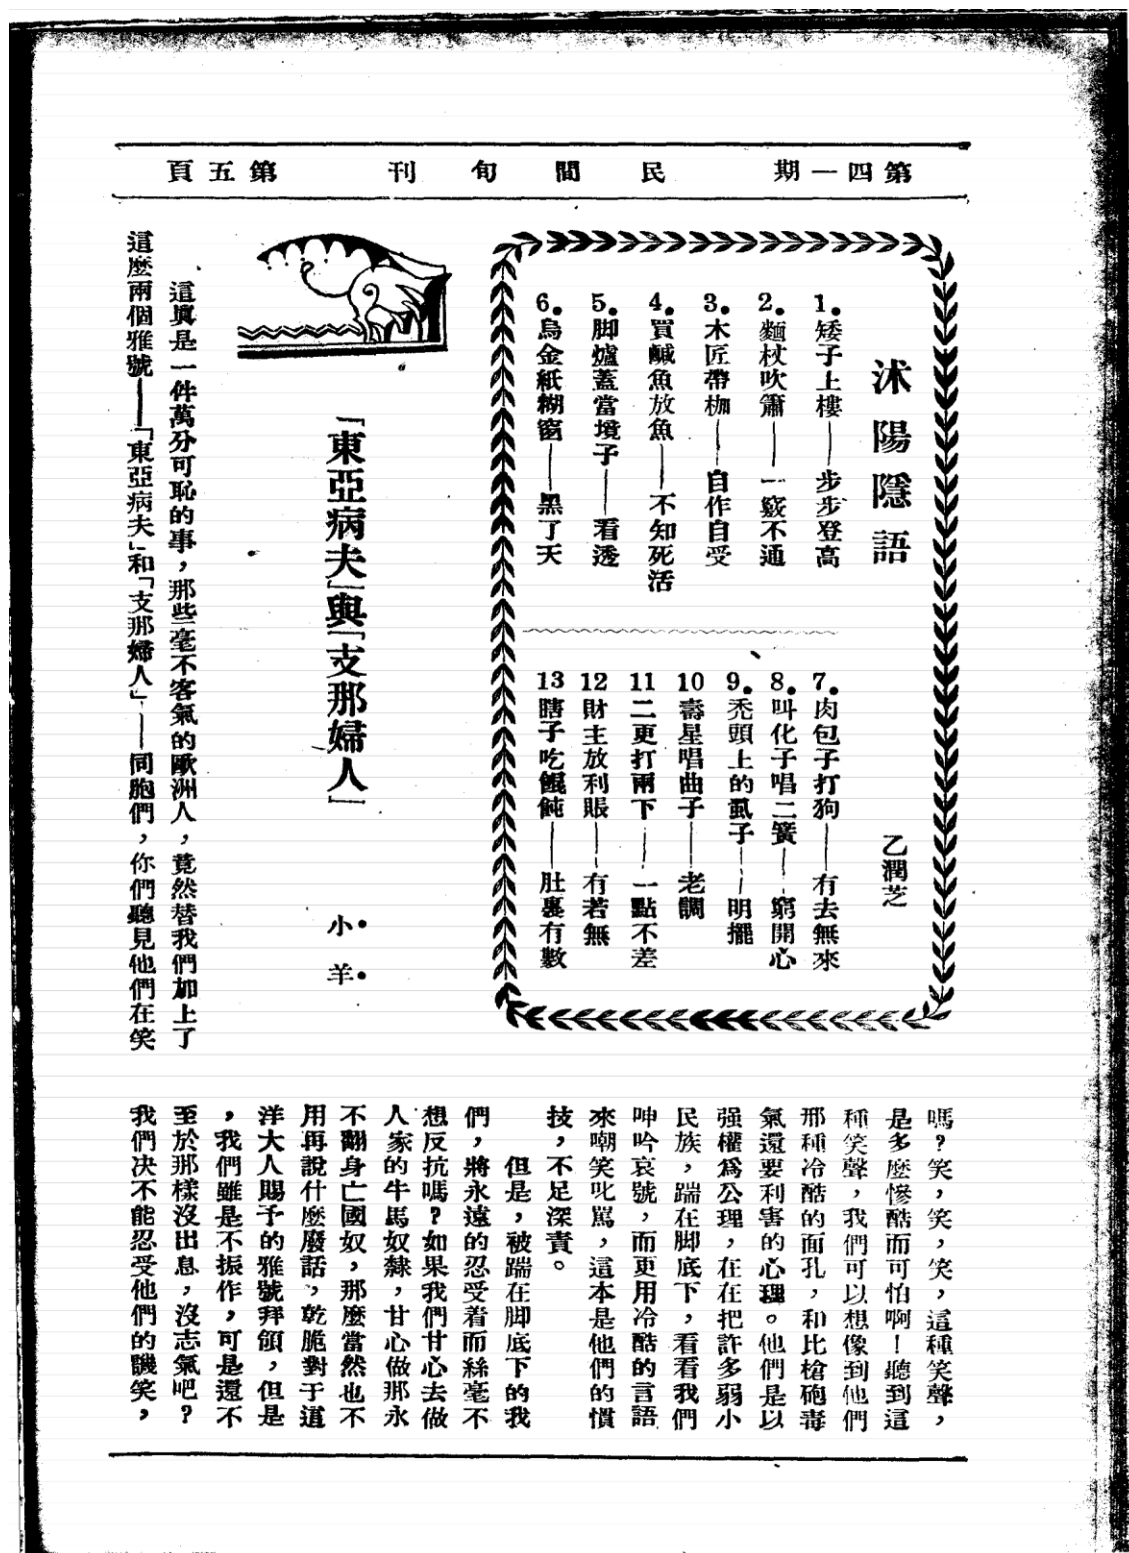 第四一期　民間旬刊　第五頁
沭陽隱語
乙潤芝
1.矮子上樓——步步登高
2.麵杖吹簫——一竅不通
3.木匠帶枷——自作自受
4.買鹹魚放魚——不知死活
5.脚爐蓋當境子——看透
6.烏金紙糊窗——黑了天
7.肉包子打狗——有去無來
8.叫化子唱二簧——窮開心
9.禿頭上的虱子——明擺
10壽星唱曲子——老調
11二更打兩下——一點不差
12財主放利賬——有若無
13瞎子吃餛飩——肚裏有數
「東亞病夫」與「支那婦人」
小羊
這眞是一件萬分可恥的事，那些毫不客氣的歐洲人，竟然替我們加上了
這麼兩個雅號——「東亞病夫」和「支那婦人」——同胞們，你們聽見他們在笑
嗎？笑，笑，笑，這種笑聲，
是多麼慘酷而可怕啊！聽到這
種笑聲，我們可以想像到他們
那種冷酷的面孔，和比槍砲毒
氣還要利害的心理。他們是以
强權爲公理，在在把許多弱小
民族，踹在脚底下，看看我們
呻吟哀號，而更用冷酷的言語
來嘲笑叱駡，這本是他們的慣
技，不足深責。
但是，被踹在脚底下的我
們，將永遠的忍受着而絲毫不
想反抗嗎？如果我們甘心去做
人家的牛馬奴隸，甘心做那永
不翻身亡國奴，那麼當然也不
用再說什麼廢話，乾脆對于這
洋大人賜予的雅號拜領，但是
，我們雖是不振作，可是還不
至於那樣沒出息，沒志氣吧？
我們决不能忍受他們的譏笑，